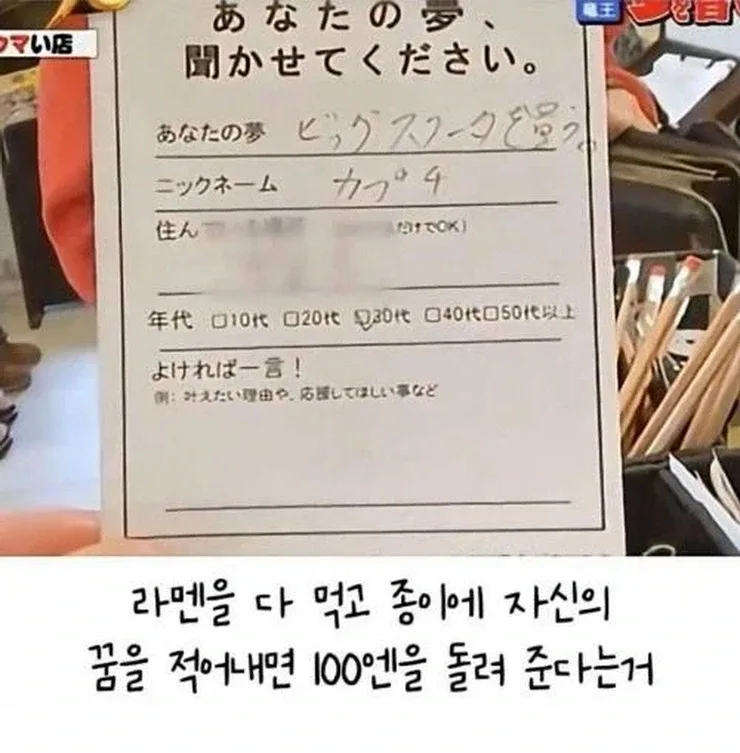 マい店
竜王
あなたの夢、
聞かせてください。
あなたの夢 ビッグスクータを買う。
ニックネーム カプチ
住ん だけでOK)
年代 □10代 □20代 ☑30代 □40代 □50代以上
よければ一言!
例: 叶えたい理由や、応援してほしい事など
라멘을 다 먹고 종이에 자신의
꿈을 적어내면 100엔을 돌려 준다는거